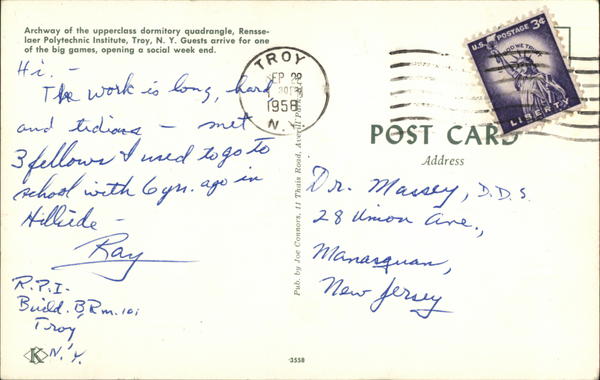 Archway of the upperclass dormitory quadrangle, Rensse-
laer Polytechnic Institute, Troy, N. Y. Guests arrive for one
of the big games, opening a social week end.
Hi. -
The work is long, hard
and tedious - met
3 fellows I used to go to
school with 6 yr. ago in
Hillside -
Ray
R.P.I.
Build. B, Rm. 101
Troy
N.Y.
K
TROY
1958
N.Y.
U.S. POSTAGE 3¢
IN GOD WE TRUST
LIBERTY
POST CARD
Address
Dr. Massey, D.D.S.
28 Union Ave.,
Manasquan,
New Jersey
Pub. by Joe Connors, 11 Thais Road, Averill Park
3558